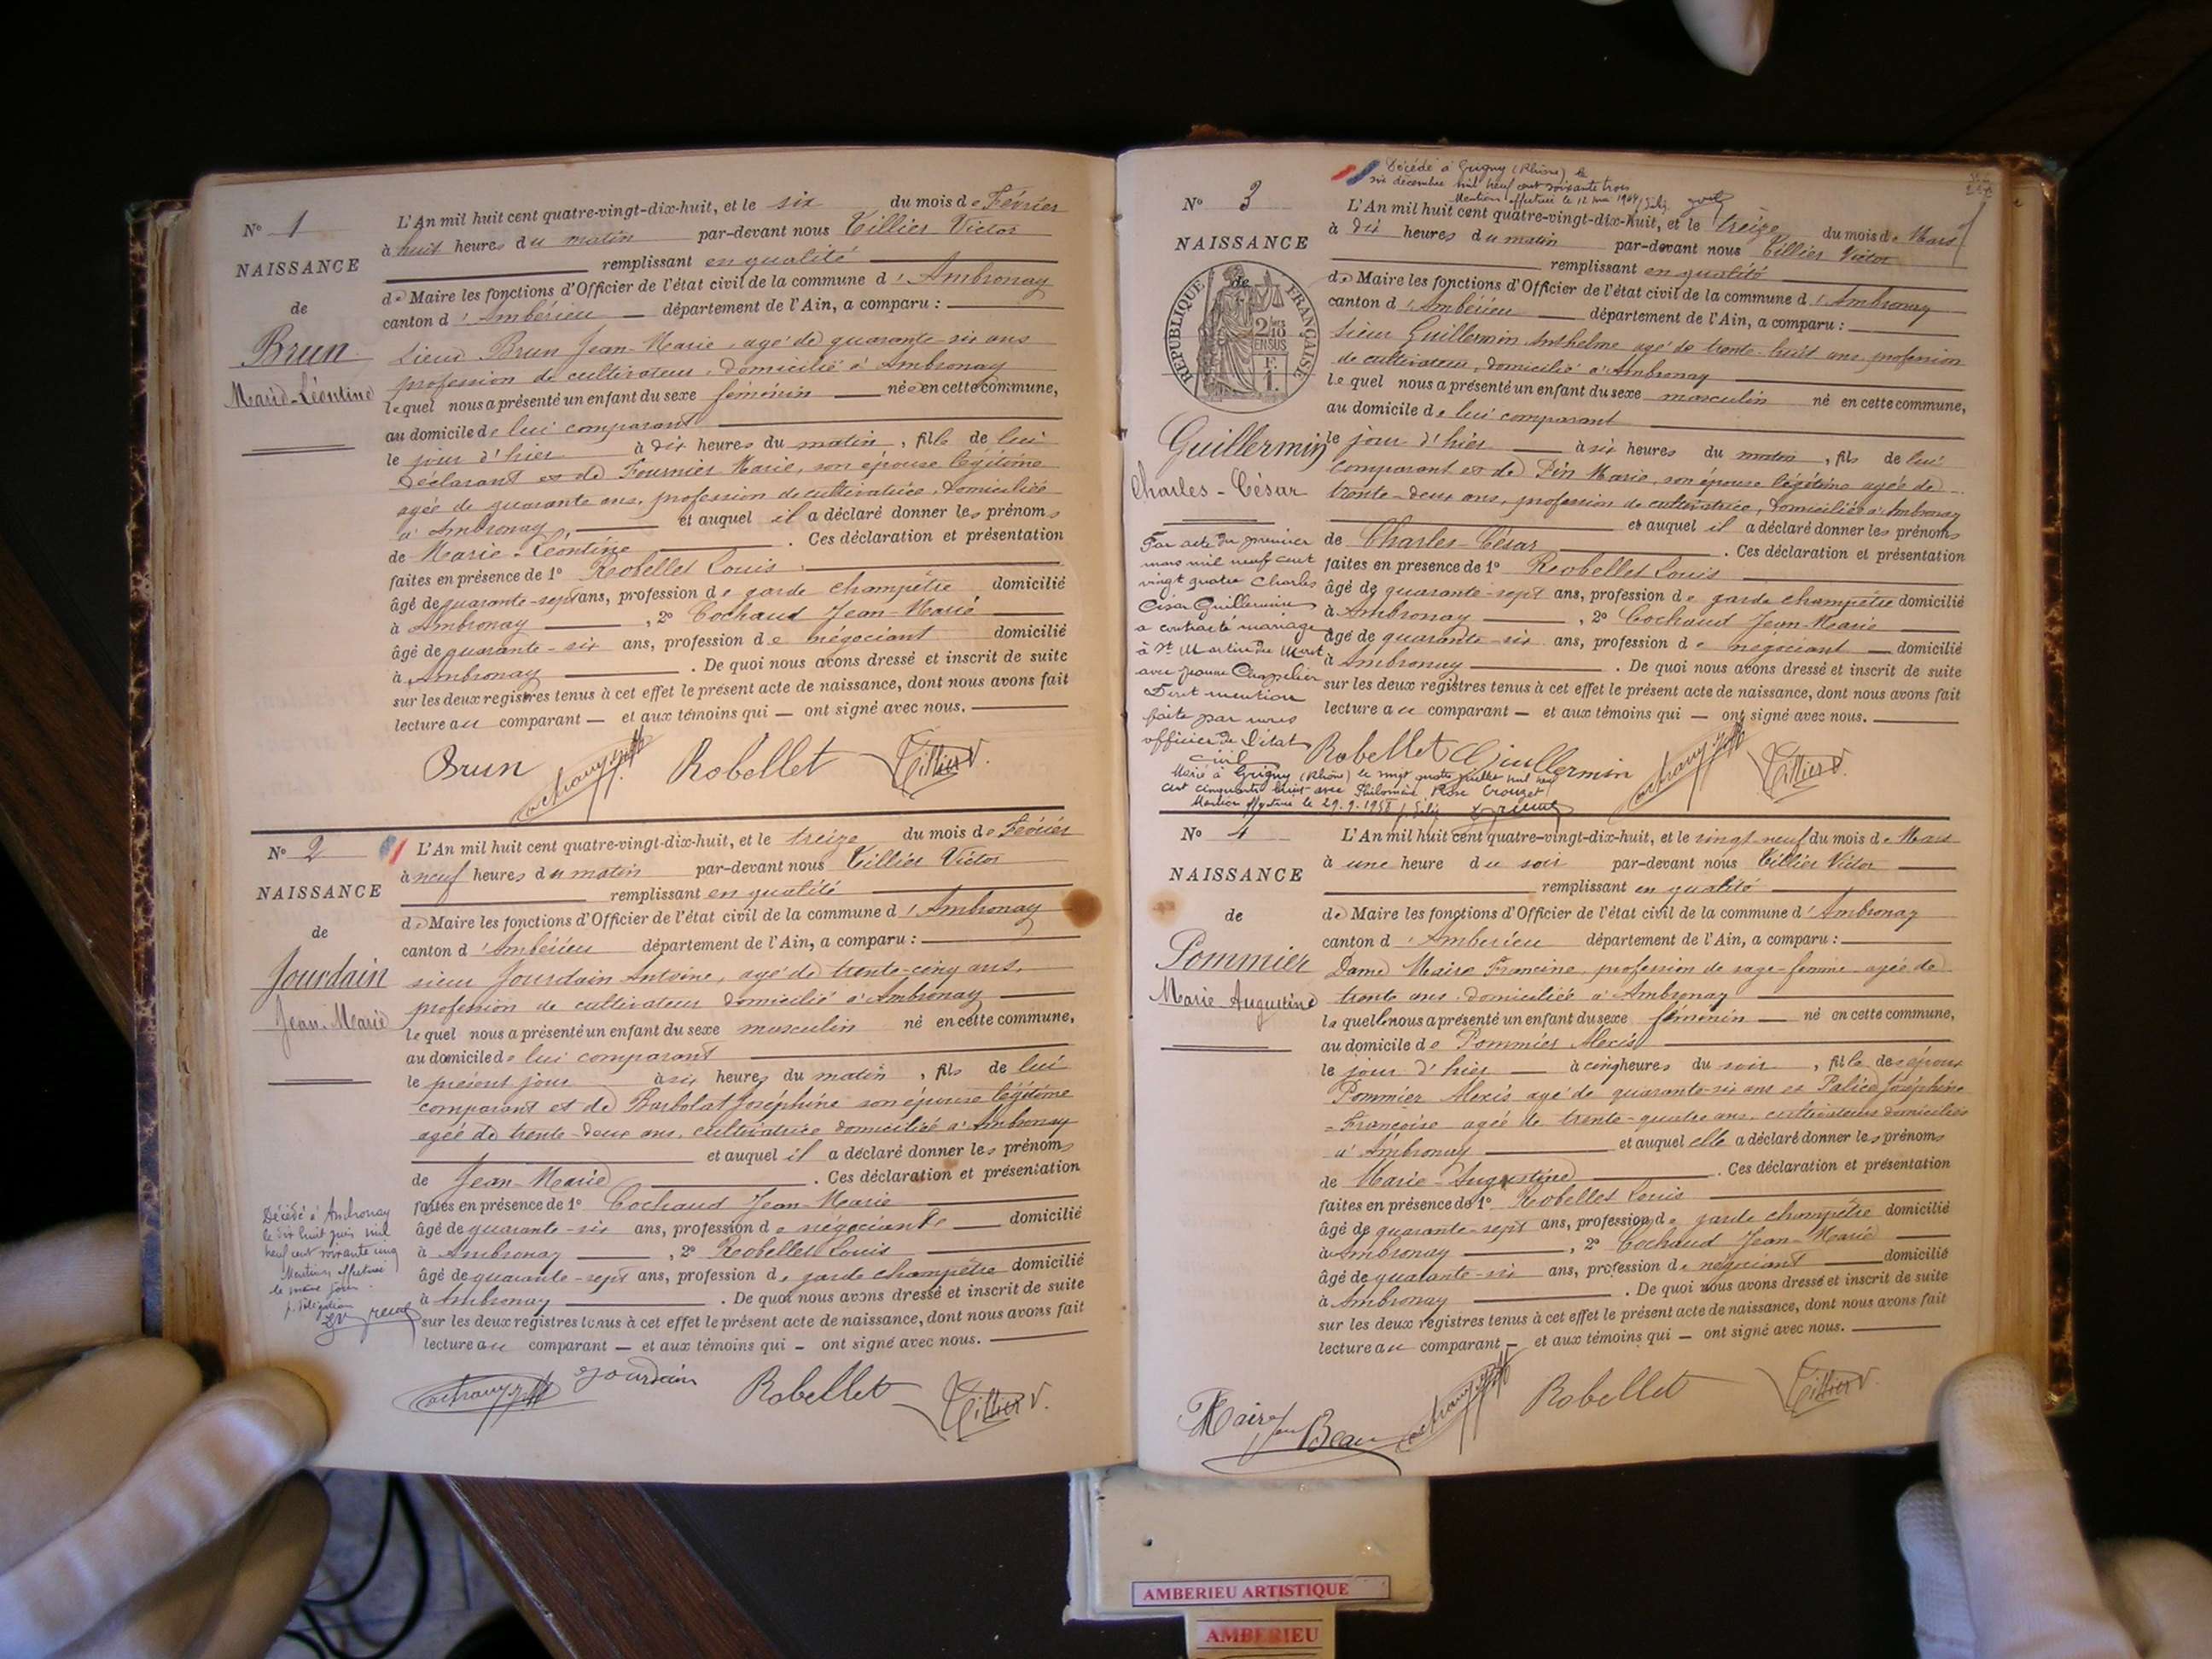 N° 1
NAISSANCE
de
Brun
Marie-Léontine
L'An mil huit cent quatre-vingt-dix-huit, et le six du mois de Février
à huit heures du matin par-devant nous Tillier Victor
remplissant en qualité
de Maire les fonctions d'Officier de l'état civil de la commune d'Ambronay
canton d'Ambérieu — département de l'Ain, a comparu :
sieur Brun Jean-Marie, agé de quarante-six ans
profession de cultivateur, domicilié à Ambronay
lequel nous a présenté un enfant du sexe féminin — née en cette commune,
au domicile de lui comparant
le jour d'hier à dix heures du matin, fille de lui
déclarant et de Fournier Marie, son épouse légitime
agée de quarante ans, profession de cultivatrice, domiciliée
à Ambronay, — et auquel il a déclaré donner les prénoms
de Marie-Léontine — . Ces déclaration et présentation
faites en présence de 1° Robellet Louis
âgé de quarante-sept ans, profession de garde champêtre domicilié
à Ambronay — , 2° Cochaud Jean-Marie
âgé de quarante-six ans, profession de négociant domicilié
à Ambronay — . De quoi nous avons dressé et inscrit de suite
sur les deux registres tenus à cet effet le présent acte de naissance, dont nous avons fait
lecture au comparant — et aux témoins qui — ont signé avec nous. —
Brun Robellet Tillier V.
N° 2
NAISSANCE
de
Jourdain
Jean-Marie
L'An mil huit cent quatre-vingt-dix-huit, et le treize du mois de Février
à neuf heures du matin par-devant nous Tillier Victor
remplissant en qualité
de Maire les fonctions d'Officier de l'état civil de la commune d'Ambronay
canton d'Ambérieu département de l'Ain, a comparu :
sieur Jourdain Antoine, agé de trente-cinq ans,
profession de cultivateur domicilié à Ambronay
lequel nous a présenté un enfant du sexe masculin né en cette commune,
au domicile de lui comparant
le présent jour à six heures du matin, fils de lui
comparant et de Barbolat Joséphine son épouse légitime
agée de trente-deux ans, cultivatrice domiciliée à Ambronay
et auquel il a déclaré donner les prénoms
de Jean-Marie — . Ces déclaration et présentation
faites en présence de 1° Cochaud Jean-Marie
âgé de quarante-six ans, profession de négociant — domicilié
à Ambronay — , 2° Robellet Louis
âgé de quarante-sept ans, profession de garde champêtre domicilié
à Ambronay — . De quoi nous avons dressé et inscrit de suite
sur les deux registres tenus à cet effet le présent acte de naissance, dont nous avons fait
lecture au comparant — et aux témoins qui — ont signé avec nous. —
Décédé à Ambronay
le dix huit juin mil
neuf cent soixante cinq
Mention effectuée
le même jour
p. délégation
Jourdain Robellet Tillier V.
Décédé à Grigny (Rhône) le
six décembre mil neuf cent soixante trois
Mention effectuée le 12 mai 1964
N° 3
NAISSANCE
de
RÉPUBLIQUE FRANÇAISE
Guillermin
Charles-César
L'An mil huit cent quatre-vingt-dix-huit, et le treize du mois de Mars
à dix heures du matin par-devant nous Tillier Victor
remplissant en qualité
de Maire les fonctions d'Officier de l'état civil de la commune d'Ambronay
canton d'Ambérieu — département de l'Ain, a comparu :
sieur Guillermin Anthelme agé de trente-huit ans, profession
de cultivateur, domicilié à Ambronay
lequel nous a présenté un enfant du sexe masculin né en cette commune,
au domicile de lui comparant
le jour d'hier — à six heures du matin, fils de lui
comparant et de Pin Marie, son épouse légitime agée de
trente-deux ans, profession de cultivatrice, domiciliée à Ambronay
et auquel il a déclaré donner les prénoms
de Charles-César — . Ces déclaration et présentation
faites en présence de 1° Robellet Louis
âgé de quarante-sept ans, profession de garde champêtre domicilié
à Ambronay — , 2° Cochaud Jean-Marie
âgé de quarante-six ans, profession de négociant — domicilié
à Ambronay — . De quoi nous avons dressé et inscrit de suite
sur les deux registres tenus à cet effet le présent acte de naissance, dont nous avons fait
lecture au comparant — et aux témoins qui — ont signé avec nous. —
Par acte du premier
mars mil neuf cent
vingt quatre Charles
César Guillermin
a contracté mariage
à St Martin du Mont
avec Jeanne
Dont mention
faite par nous
officier de l'état
civil
Robellet Guillermin Tillier V.
Marié à Grigny (Rhône) le vingt quatre juillet mil neuf
cent cinquante huit avec Philomène Rose Crouzet
Mention effectuée le 29.9.1958
N° 4
NAISSANCE
de
Pommier
Marie Augustine
L'An mil huit cent quatre-vingt-dix-huit, et le vingt-neuf du mois de Mars
à une heure du soir par-devant nous Tillier Victor
remplissant en qualité
de Maire les fonctions d'Officier de l'état civil de la commune d'Ambronay
canton d'Amberieu département de l'Ain, a comparu :
Dame Maire Francine, profession de sage-femme agée de
trente ans, domiciliée à Ambronay
laquelle nous a présenté un enfant du sexe féminin — né en cette commune,
au domicile de Pommier Alexis
le jour d'hier — à cinq heures du soir, fille des époux
Pommier Alexis agé de quarante-six ans et Palice Joséphine
-Françoise agée de trente-quatre ans, cultivateurs domiciliés
à Ambronay — et auquel elle a déclaré donner les prénoms
de Marie-Augustine — . Ces déclaration et présentation
faites en présence de 1° Robellet Louis
âgé de quarante-sept ans, profession de garde champêtre domicilié
à Ambronay — , 2° Cochaud Jean-Marie
âgé de quarante-six ans, profession de négociant — domicilié
à Ambronay — . De quoi nous avons dressé et inscrit de suite
sur les deux registres tenus à cet effet le présent acte de naissance, dont nous avons fait
lecture au comparant — et aux témoins qui — ont signé avec nous. —
Maire Beau Robellet Tillier V.
AMBERIEU ARTISTIQUE
AMBERIEU